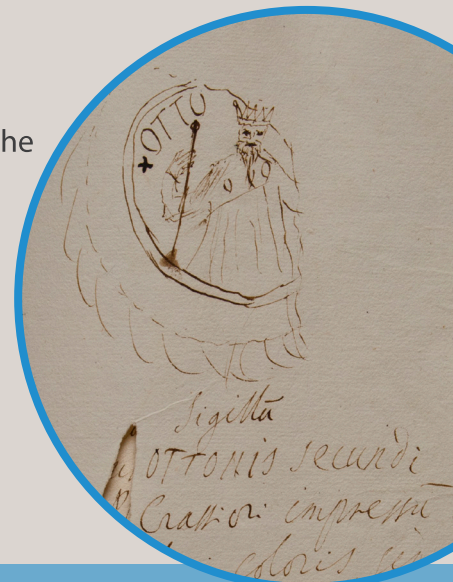 he
+OTTO
Sigillū
OTTONIS secundi
Crassiori impressū
coloris